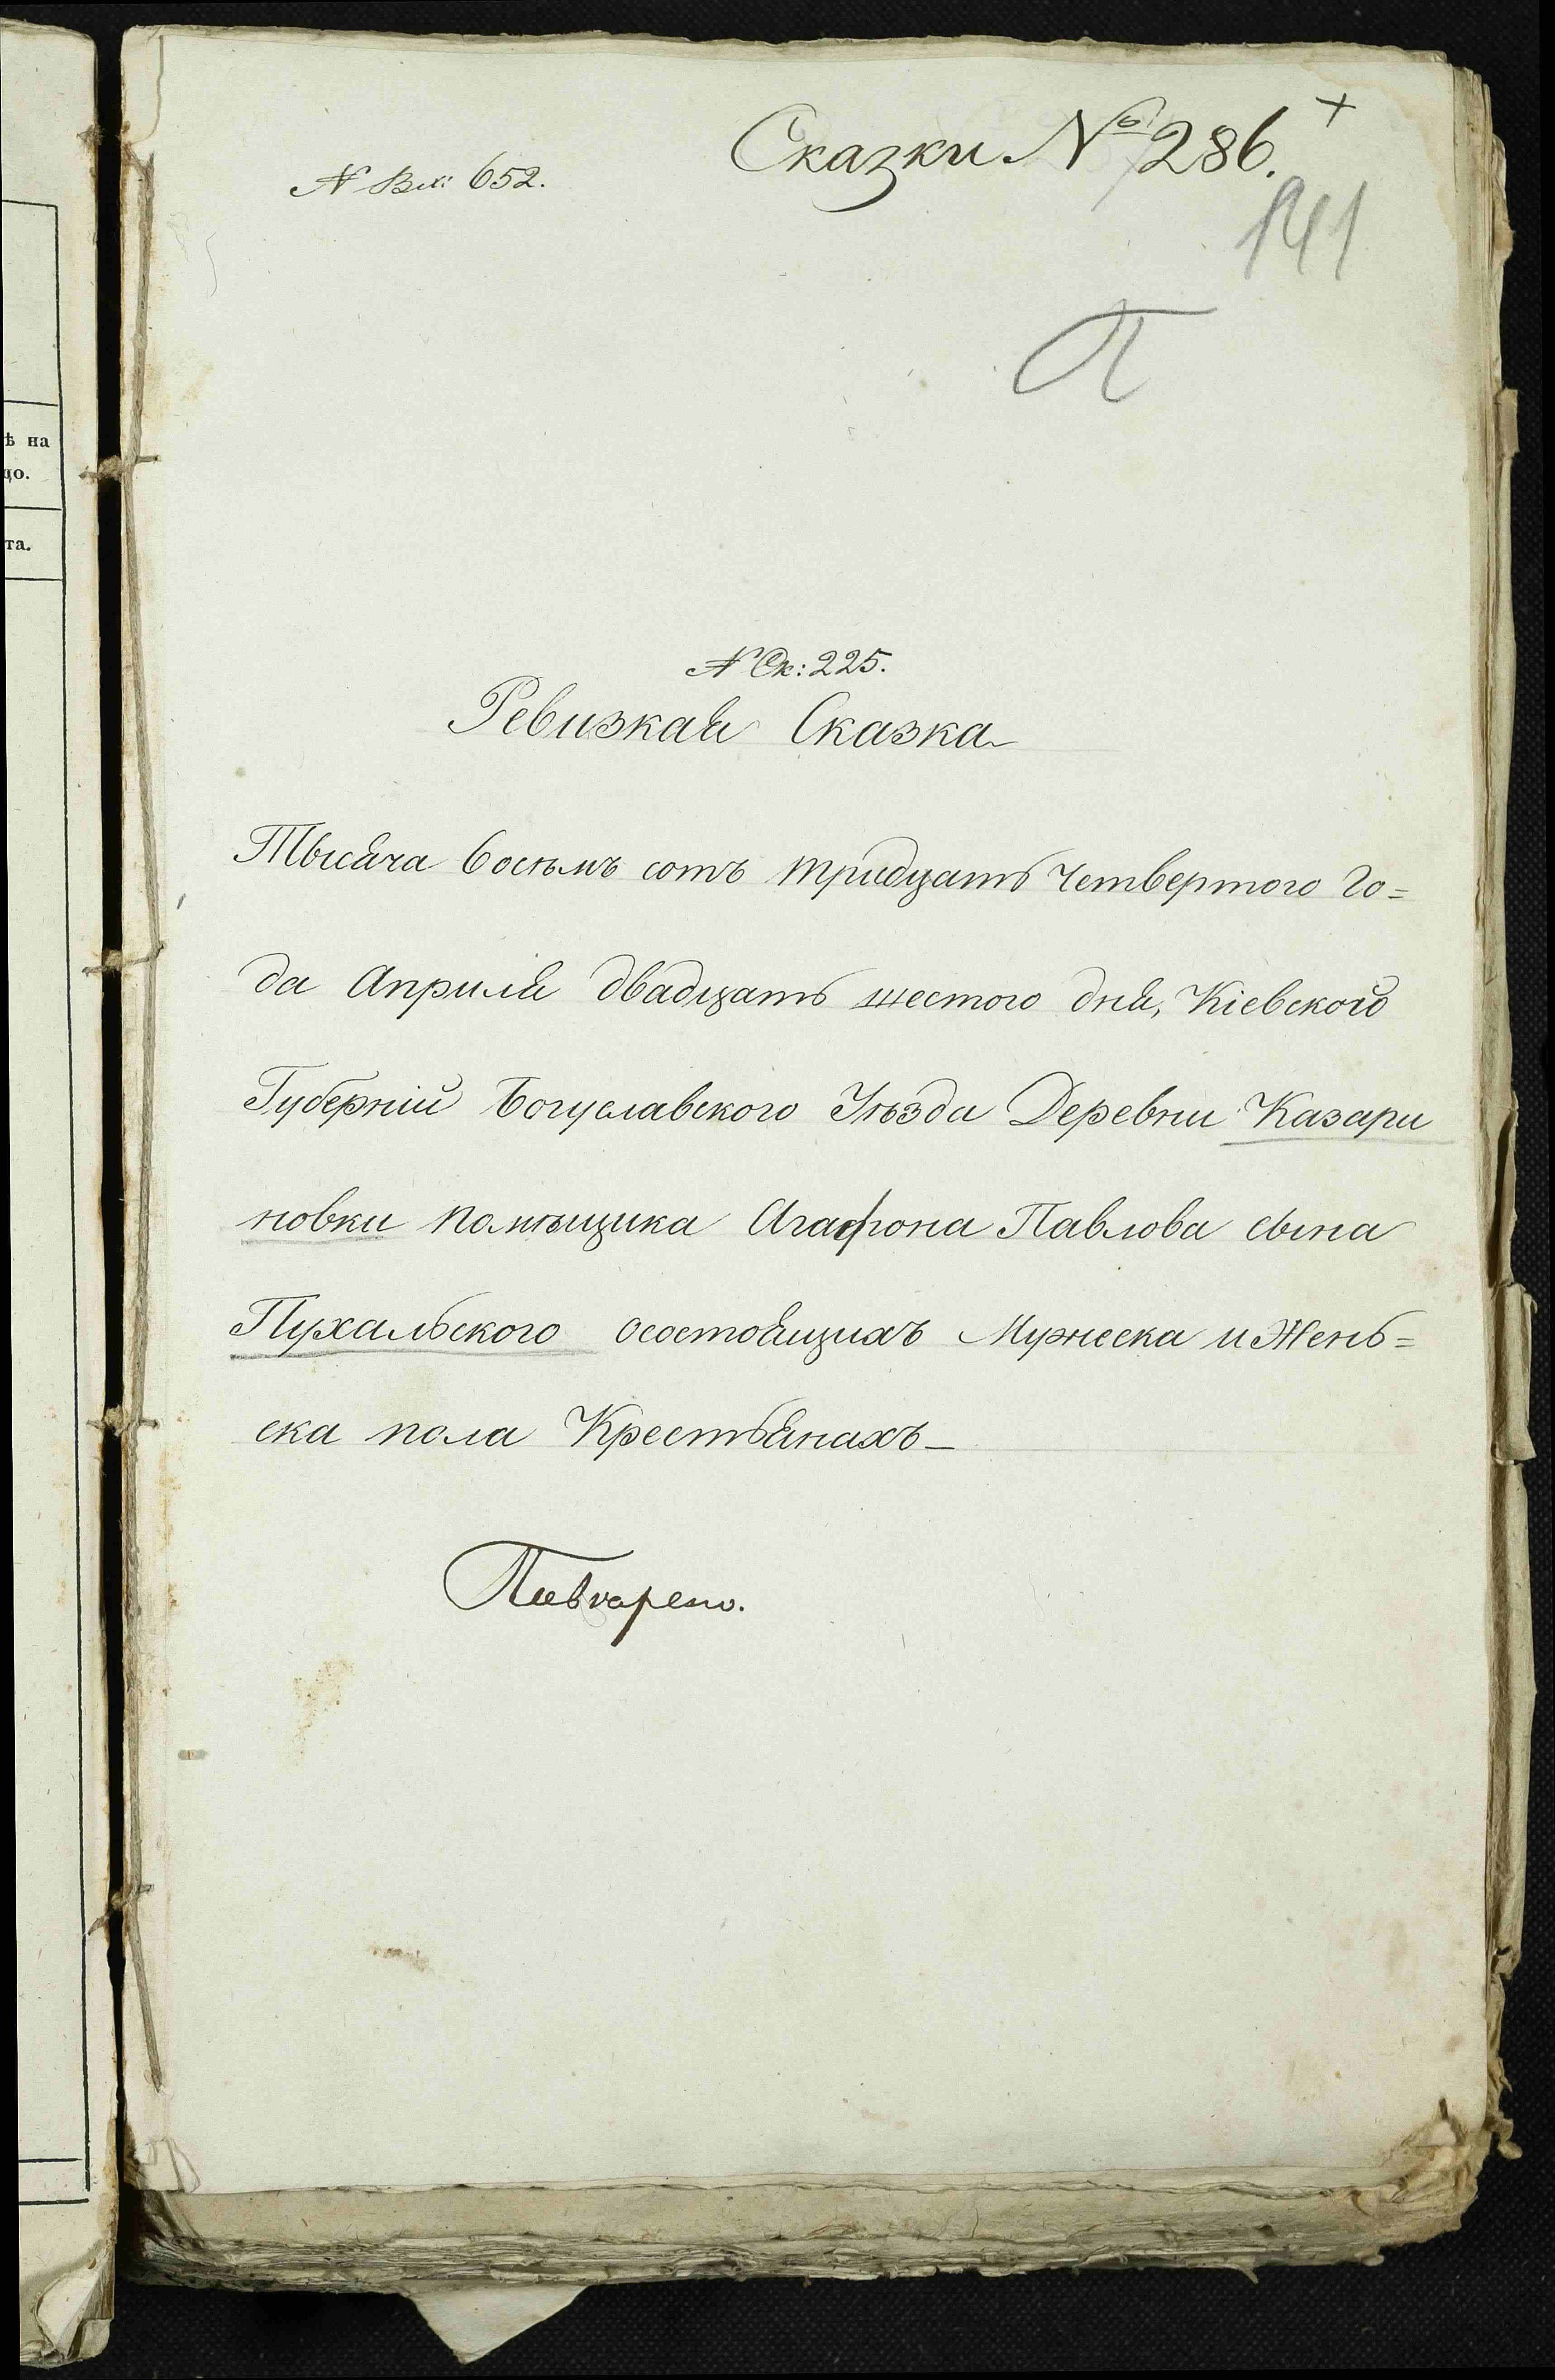 ѣ на
до.
та.
N Вх: 652.
Сказки № 286.
141
П
N Ск: 225.
Ревизкая Сказка
Тысяча восѣмъ сотъ тридцать Четвертого Го=
да Апрѣля двадцать шестого дня, Кіевского
Губерніи Богуславского Уѣзда Деревни Казари
новки помѣщика Агафона Павлова сына
Пухальского осостоящихъ Мужеска и Жень=
ска пола Крестьянахъ